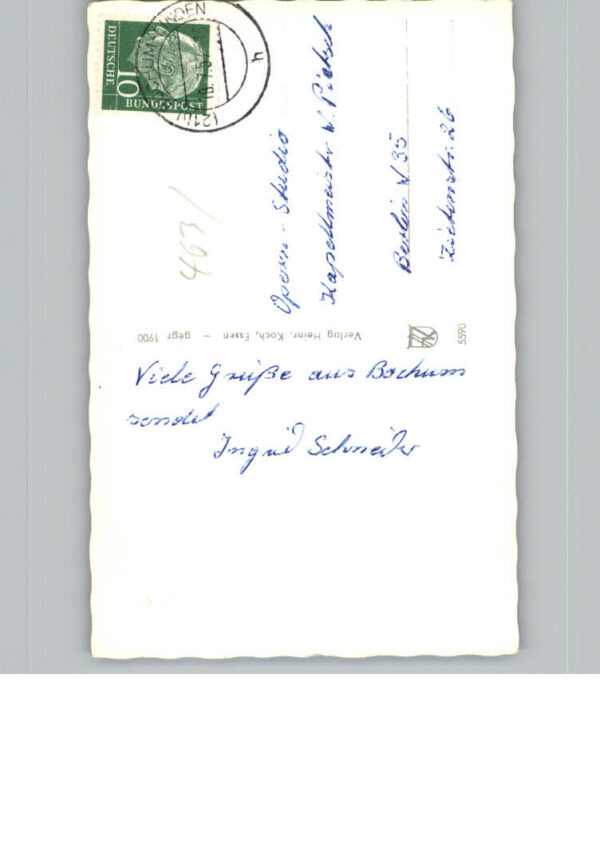 DEUTSCHE
BUNDESPOST
10
(21b)
h
463/
Opern-Studio
Kapellmeister W. Pietsch
Berlin W 35
Zietenstr. 26
Verlag Heinr. Koch, Essen – gegr. 1900
5590
Viele Grüße aus Bochum
sendet
Ingrid Schneider